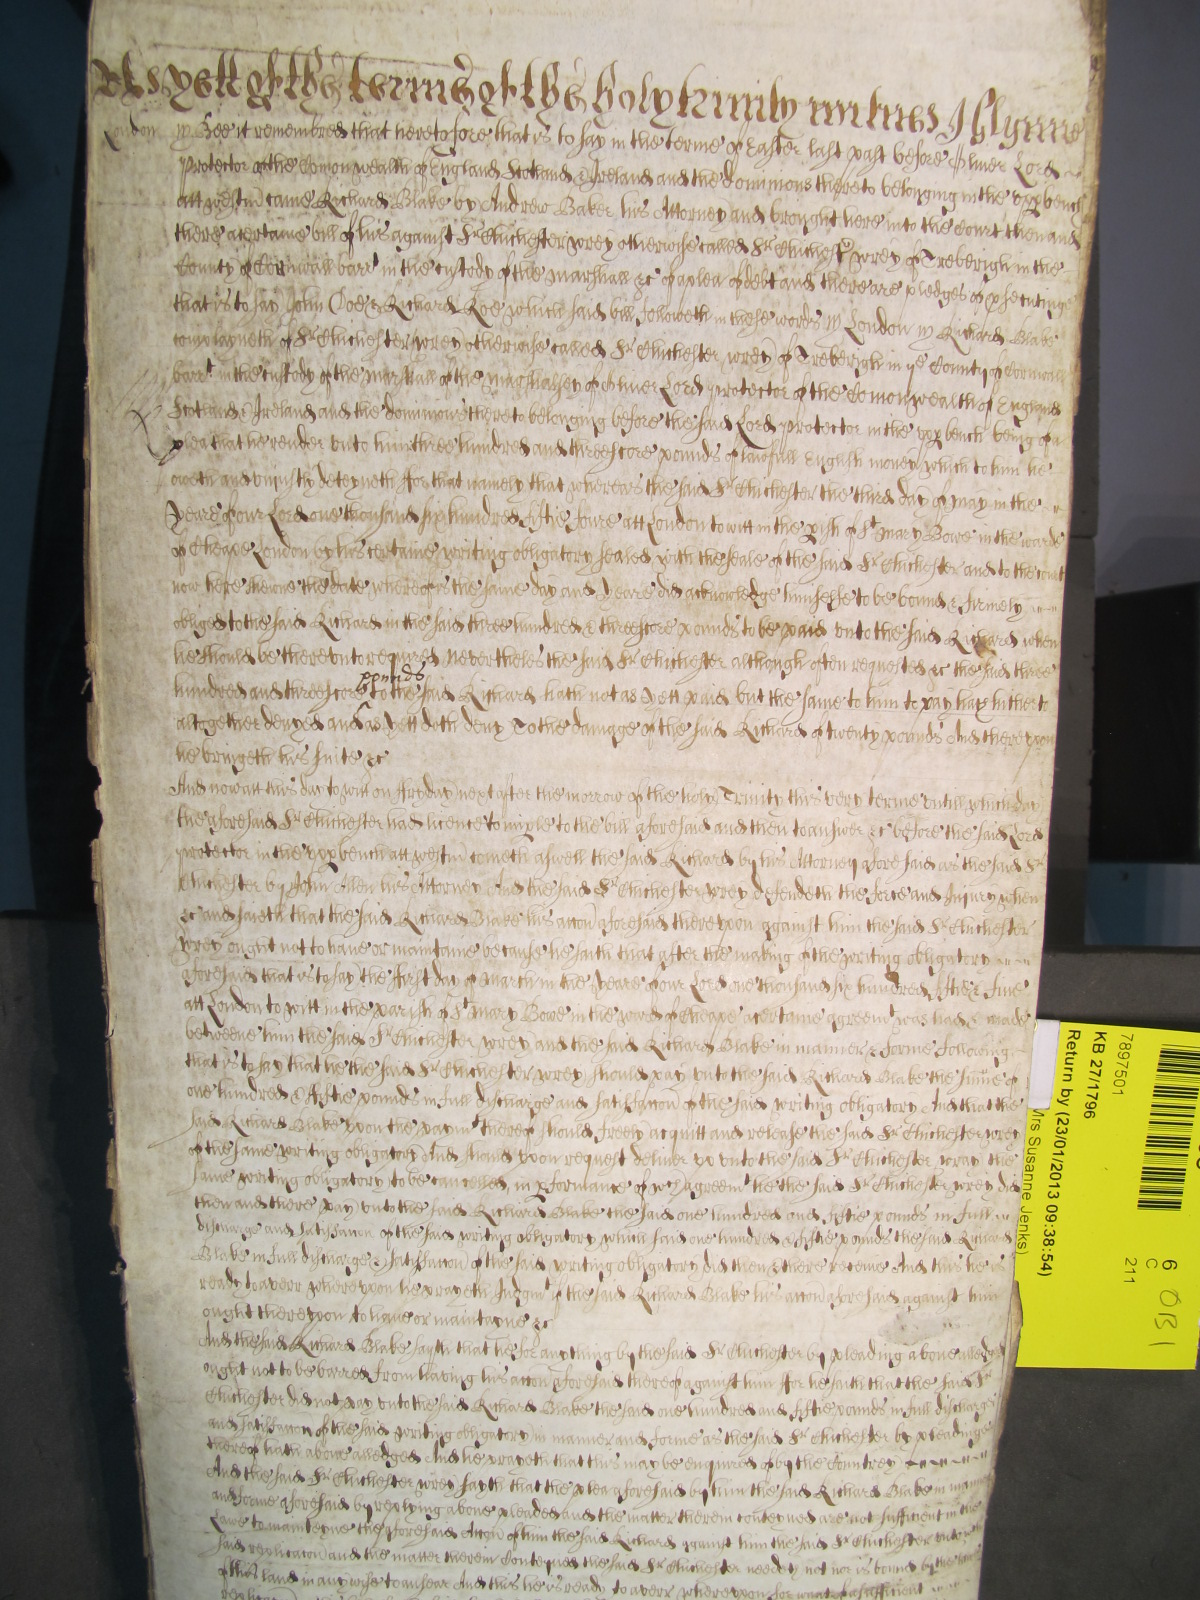 As yett of the terme of the holy trinity witnes J Glynne
London ss Bee it remembred that heretofore that is to say in the terme of Easter last past before Oliver Lord
Protector of the Comonwealth of England Scotland & Ireland and the dominions thereto belonging in the upp bench
att westm came Richard Blake by Andrew Baker his Attorney and brought here into the Court then and
there a certaine bill of his against Sr Chichester wrey otherwise called Sr Chichester wrey of Treberigh in the
County of Cornwall barrt in the custody of the marshall &c of a plea of debt and there are pledges of psecuting
that is to say John Doe & Richard Roe which said bill followeth in these words ss London ss Richard Blake
complayneth of Sr Chichester wrey otherwise called Sr Chichester wrey of Treberigh in ye County of Cornwall
barrt in the custody of the marshall of the marshalsey of Oliver Lord protector of the Comonwealth of England
Scotland & Ireland and the dominions thereto belonging before the said Lord protector in the upp bench being of a
plea that he render unto him three hundred and threescore pounds of lawfull English money which to him he
oweth and unjustly deteyneth for that namely that whereas the said Sr Chichester the third day of may in the
yeare of our Lord one thousand six hundred fiftie foure att London to witt in the pish of St Mary Bowe in the warde
of Cheape London by his certaine writing obligatory sealed with the seale of the said Sr Chichester and to the court
now here shewne the date whereof is the same day and yeare did acknowledge himselfe to be bound & firmely
obliged to the said Richard in the said three hundred & threescore pounds to be paid unto the said Richard when
he should be thereunto required Nevertheles the said Sr Chichester although often requested &c the said three
hundred and threescore pounds to the said Richard hath not as yett paid but the same to him to pay hath hitherto
altogether denyed and as yett doth deny To the damage of the said Richard of twenty pounds And thereupon
he bringeth his suite &c
And now att this day to witt on fryday next after the morrow of the holy Trinity this very terme untill which day
the aforesaid Sr Chichester had licence to imple to the bill aforesaid and then to answer &c before the said Lord
protector in the upp bench att westm cometh aswell the said Richard by his Attorney aforesaid as the said Sr
Chichester by John Allen his Attorney And the said Sr Chichester wrey defendeth the force and Injury when
&c and saieth that the said Richard Blake his accon aforesaid thereupon against him the said Sr Chichester
wrey ought not to have or maintaine because he saith that after the making of the writing obligatory
aforesaid that is to say the first day of March in the yeare of our Lord one thousand six hundred fiftie & five
att London to witt in the parish of St Mary Bowe in the ward of Cheape a certaine agreemt was had & made
betweene him the said Sr Chichester wrey and the said Richard Blake in manner & forme following
that is to say that he the said Sr Chichester wrey should pay unto the said Richard Blake the sume of
one hundred & fiftie pounds in full discharge and satisfaccon of the said writing obligatory And that the
said Richard Blake upon the paymt thereof should freely acquitt and release the said Sr Chichester wrey
of the same writing obligatory And should upon request deliver up unto the said Sr Chichester wray the
same writing obligatory to be cancelled in pformance of wch agreemt he the said Sr Chichester wrey did
then and there pay unto the said Richard Blake the said one hundred and fiftie pounds in full
discharge and satisfaccon of the said writing obligatory which said one hundred & fiftie pounds the said Richard
Blake in full discharge & satisfaccon of the said writing obligatory did then & there receive And this he is
ready to averr whereupon he prayeth Judgmt if the said Richard Blake his accon aforesaid against him
ought thereupon to have or maintayne &c
And the said Richard Blake sayth that he for any thing by the said Sr Chichester by pleading above alledged
ought not to be barred from having his accon aforesaid thereof against him for he saith that the said Sr
Chichester did not pay unto the said Richard Blake the said one hundred and fiftie pounds in full discharge
and satisfaccon of the said writing obligatory in manner and forme as the said Sr Chichester by pleading
thereof hath above alledged And he prayeth that this may be enquired of by the Countrey
And the said Sr Chichester wrey sayth that the plea aforesaid by him the said Richard Blake in manner
and forme aforesaid by replying above pleaded and the matter therein conteyned are not sufficient in the
Lawe to mainteyne the aforesaid Accon of him the said Richard against him the said Sr Chichester
said replicacon and the matter therein Conteyned the said Sr Chichester needeth not nor is bound by the
of this land in any wise to answer And this he is ready to averr whereupon for want of a sufficient
7897501
KB 27/1796
Return by (23/01/2013 09:38:54)
Mrs Susanne Jenks)
6
C
211